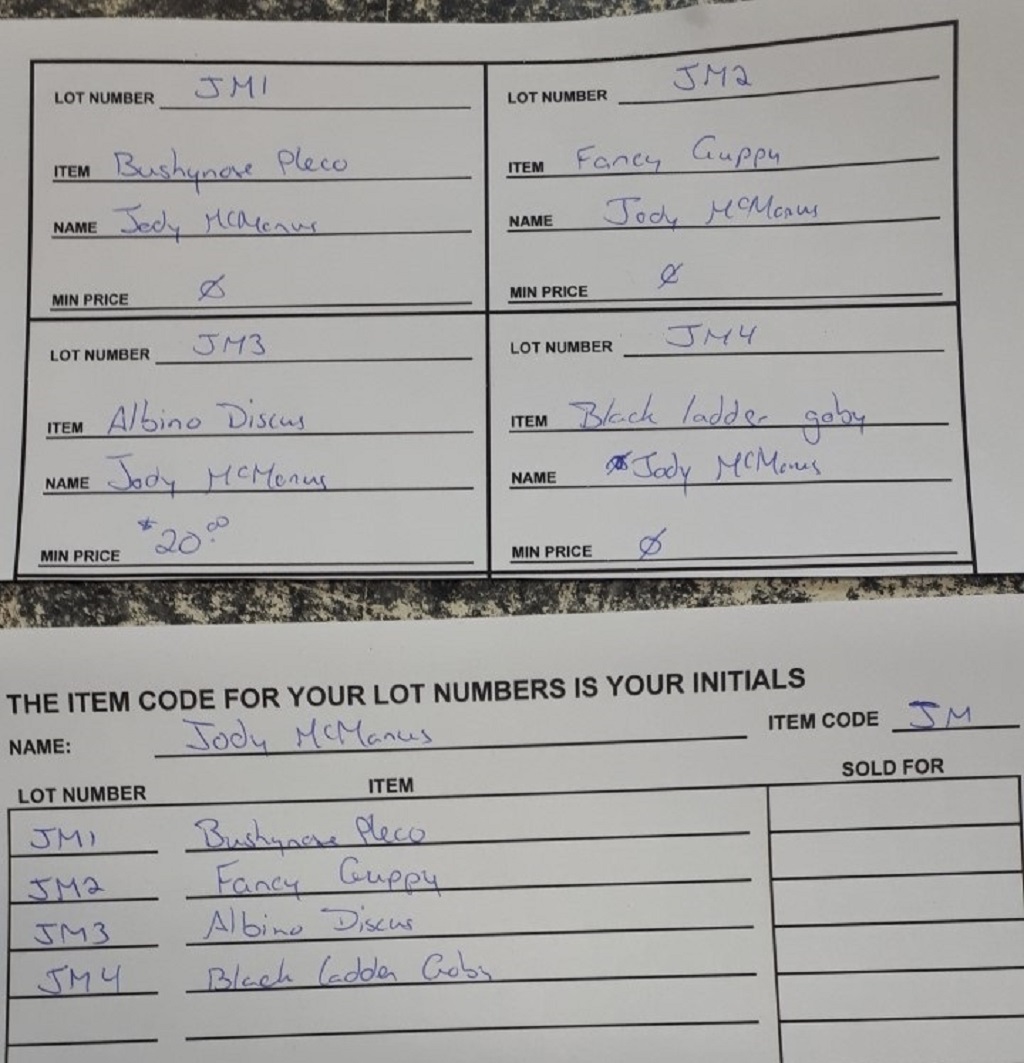 LOT NUMBER JM1
ITEM Bushynose Pleco
NAME Jody McManus
MIN PRICE Ø
LOT NUMBER JM2
ITEM Fancy Guppy
NAME Jody McManus
MIN PRICE Ø
LOT NUMBER JM3
ITEM Albino Discus
NAME Jody McManus
MIN PRICE $20.00
LOT NUMBER JM4
ITEM Black ladder goby
NAME Jody McManus
MIN PRICE Ø
THE ITEM CODE FOR YOUR LOT NUMBERS IS YOUR INITIALS
NAME: Jody McManus ITEM CODE JM
LOT NUMBER ITEM SOLD FOR
JM1 Bushynose Pleco
JM2 Fancy Guppy
JM3 Albino Discus
JM4 Black ladder Goby